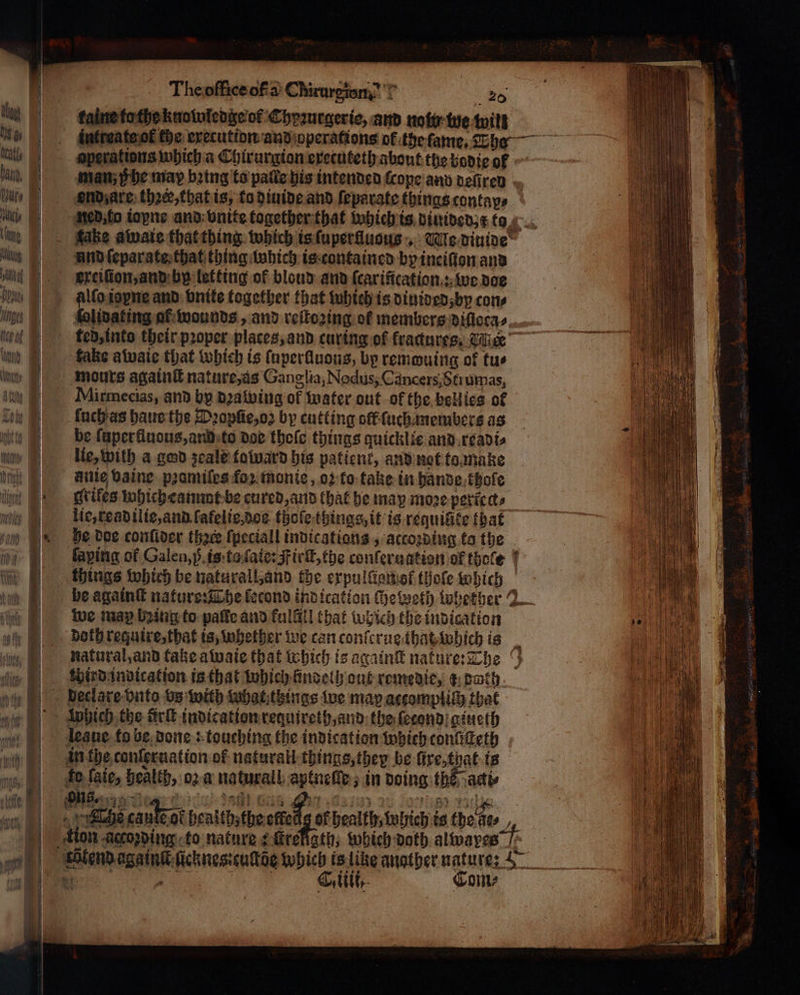 The office of a Chirurgion, 20
taine to the knowledge of Chyrurgerie, and now we will
intreate of the execution and operations of the same. The
operations which a Chirurgion executeth about the bodie of
man, yͭ he may bring to passe his intended scope and desired
end, are thrée, that is, to diuide and separate things contay-
ned, to ioyne and vnite together that which is diuided, & to
take awaie that thing which is superfluous. We diuide
and separate that thing which is contained by incision and
excision, and by letting of bloud and scarification: we doe
also ioyne and vnite together that which is diuided, by con-
solidating of wounds, and restoring of members disloca-
ted, into their proper places, and curing of fractures. Wée
take awaie that which is superfluous, by remouing of tu-
mours against nature, as Ganglia, Nodus, Cancers, Strumas,
Mirmecias, and by drawing of water out of the bellies of
such as haue the Dropsie, or by cutting off such members as
be superfluous, and to doe these things quicklie and readi-
lie, with a good zeale toward his patient, and not to make
anie vaine promises for monie, or to take in hande, those
griefes which cannot be cured, and that he may more perfect-
lie, readilie, and safelie, doe those things, it is requisite that
he doe consider thrée speciall indications, according to the
saying of Galen, yͭ is to saie: First, the conseruation of those
things which be naturall, and the expulsion of those which
be against nature: The second indication sheweth whether 2
we may bring to passe and fulfill that which the indication
doth require, that is, whether we can conserue that which is
natural, and take awaie that which is against nature: The 3
third indication is that which findeth out remedie, & doth
declare vnto vs with what things we may accomplish that
which the first indication requireth, and the second giueth
leaue to be done: touching the indication which consisteth
in the conseruation of naturall things, they be fiue, that is
to saie, health, or a naturall aptnesse, in doing the acti-
ons.
The cause of health, the effects of health, which is the ac-
tion according to nature & strength, which doth alwayes
contend against sicknes: custõe which is like another nature:
C.iiii. Com-